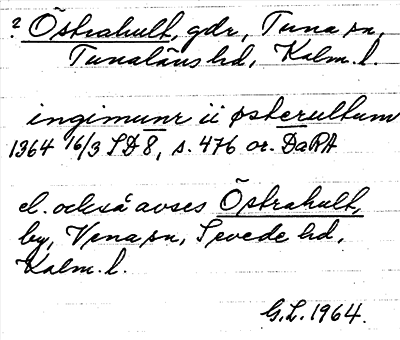 ? Östrahult, gdr, Tuna sn,
Tunaläns hd, Kalm. l.
ingimunr ii østerultum
1364 16/3 SD 8, s. 476 or. DaRA
el. också avses Östrahult,
by, Vena sn, Sevede hd,
Kalm. l.
G.L. 1964.